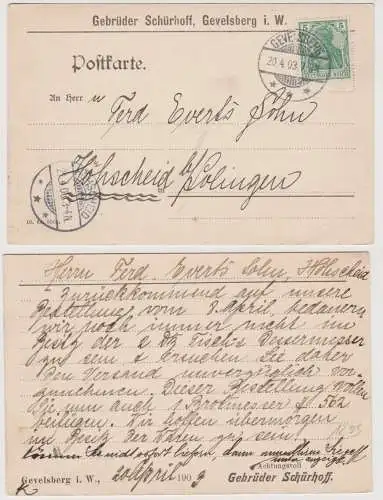 Gebrüder Schürhoff, Gevelsberg i. W.
GEVELSBERG
20.4.03.
5 5
Postkarte.
An Herr n
Ferd Everts Sohn
Höhscheid b/
Solingen
Herrn Ferd. Everts Sohn, Höhscheid
Zurückkommend auf unsere
Bestellung vom 8. April, bedauern
wir noch immer nicht im
Besitz der 2 Dz Tisch & Dessertmesser
zu sein & ersuchen Sie daher
den Versand unverzüglich vor-
zunehmen. Dieser Bestellung wollen
Sie nun auch 1 Brotmesser # 562
beifügen. Wir hoffen übermorgen
im Besitz der Waren zu sein.
dann
Achtungsvoll
Gevelsberg i. W., 20 April 190 3 Gebrüder Schürhoff.